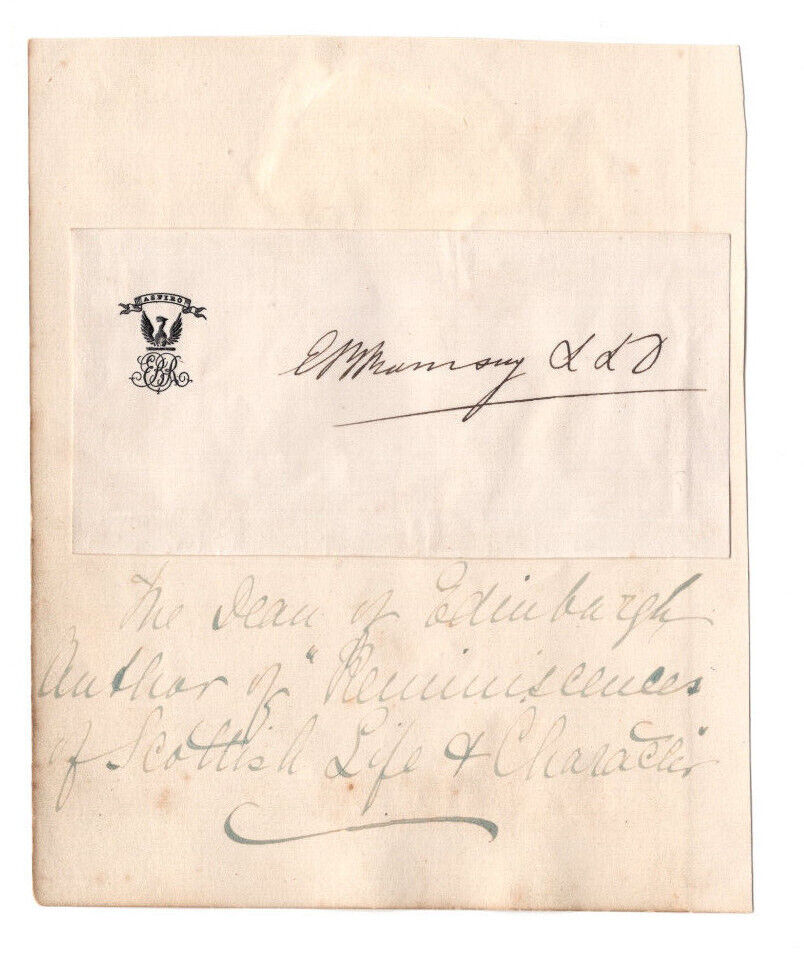 ASPIRO
EBR
E B Ramsay L L D
The Dean of Edinburgh
Author of "Reminiscences
of Scottish Life & Character